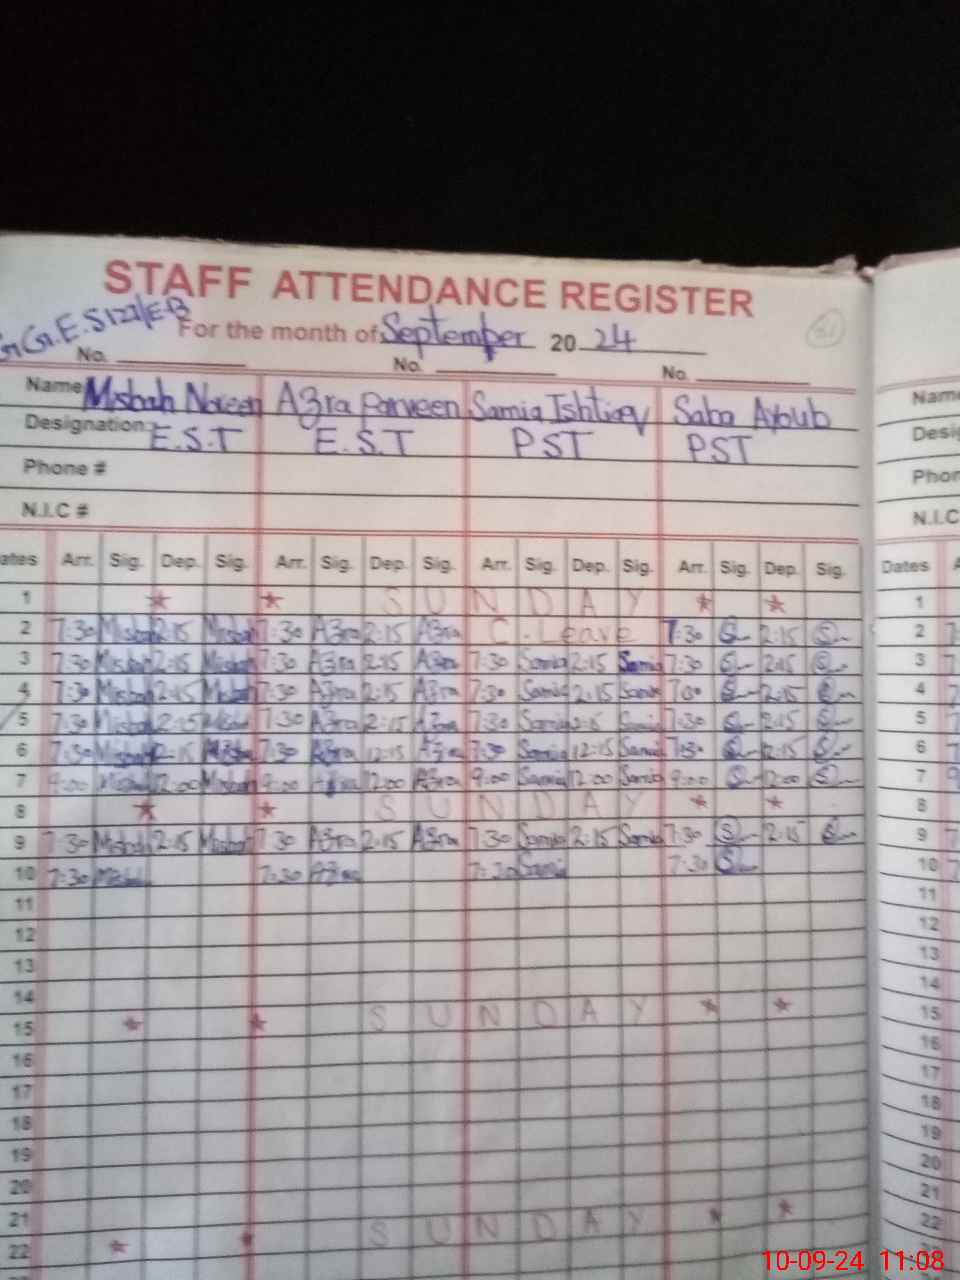 STAFF ATTENDANCE REGISTER
For the month of September 2024
No. No. No.
Name Misbah Noreen Azra Parveen Samia Ishtiaq Saba Ayoub Name
Designation E.S.T E.S.T PST PST
Phone #
N.I.C # N.I.C
Arr. Sig. Dep. Sig. Arr. Sig. Dep. Sig. Arr. Sig. Dep. Sig. Arr. Sig. Dep. Sig. Dates
1 SUNDAY 1
2 7:30 Misbah 2:15 Misbah 7:30 Azra 2:15 Azra C.Leave 7:30 2:15 2
3 7:30 Misbah 2:15 Misbah 7:30 Azra 2:15 Azra 7:30 Samia 2:15 Samia 7:30 2:15 3
4 7:30 Misbah 2:15 Misbah 7:30 Azra 2:15 Azra 7:30 Samia 2:15 Samia 2:15 4
5 7:30 Misbah 7:30 Azra 2:15 Azra 7:30 Samia 2:15 Samia 7:30 2:15 5
6 7:30 Misbah 7:30 Azra 12:15 Azra 7:30 Samia 12:15 Samia 7:30 12:15 6
7 9:00 Misbah 12:00 Misbah 9:00 Azra 12:00 Azra 9:00 Samia 12:00 Samia 9:00 12:00 7
8 SUNDAY 8
9 7:30 Misbah 2:15 Misbah 7:30 Azra 2:15 Azra 7:30 Samia 2:15 Samia 7:30 2:15 9
10 7:30 7:30 Azra 7:30 7:30 10
11 11
12 12
13 13
14 14
15 SUNDAY 15
16 16
17 17
18 18
19 19
20 20
21 21
22 SUNDAY 22
10-09-24 11:08